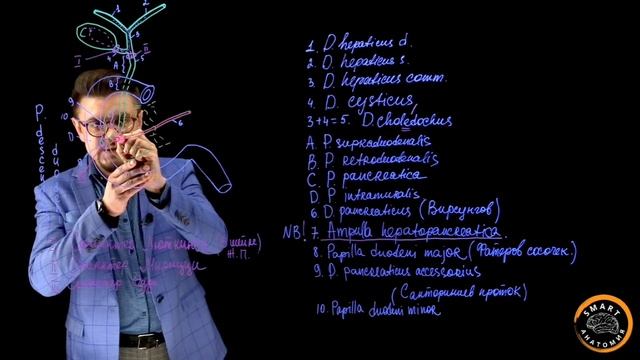 1. D. hepaticus d.
2. D. hepaticus s.
3. D. hepaticus comm.
4. D. cysticus,
3+4=5. D. choledochus
A. P. supraduodenalis
B. P. retroduodenalis
C. P. pancreatica
D. P. intramuralis
6. D. pancreaticus (Вирсунгов)
NB! 7. Ampulla hepatopancreatica.
8. Papilla duodeni major (Фатеров сосочек.)
9. D. pancreaticus accessorius
(Санториниев проток)
10. Papilla duodeni minor
1
2
3
4
5
I
II
A
B
9
10
6
P. descen
duo
Ж.П.)
SMART
АНАТОМИЯ